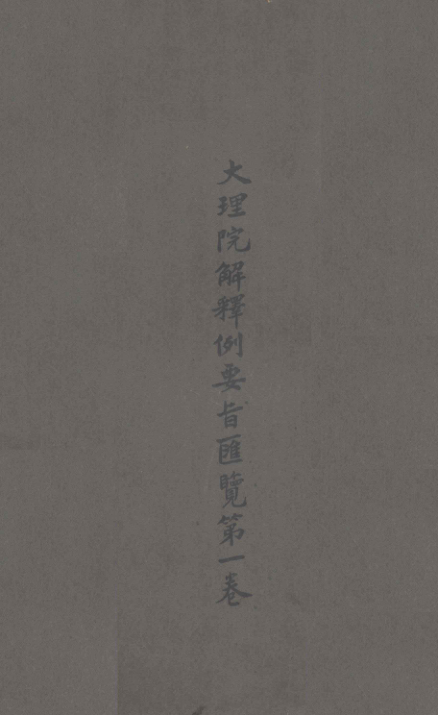 大理院解釋例要旨匯覽第一卷